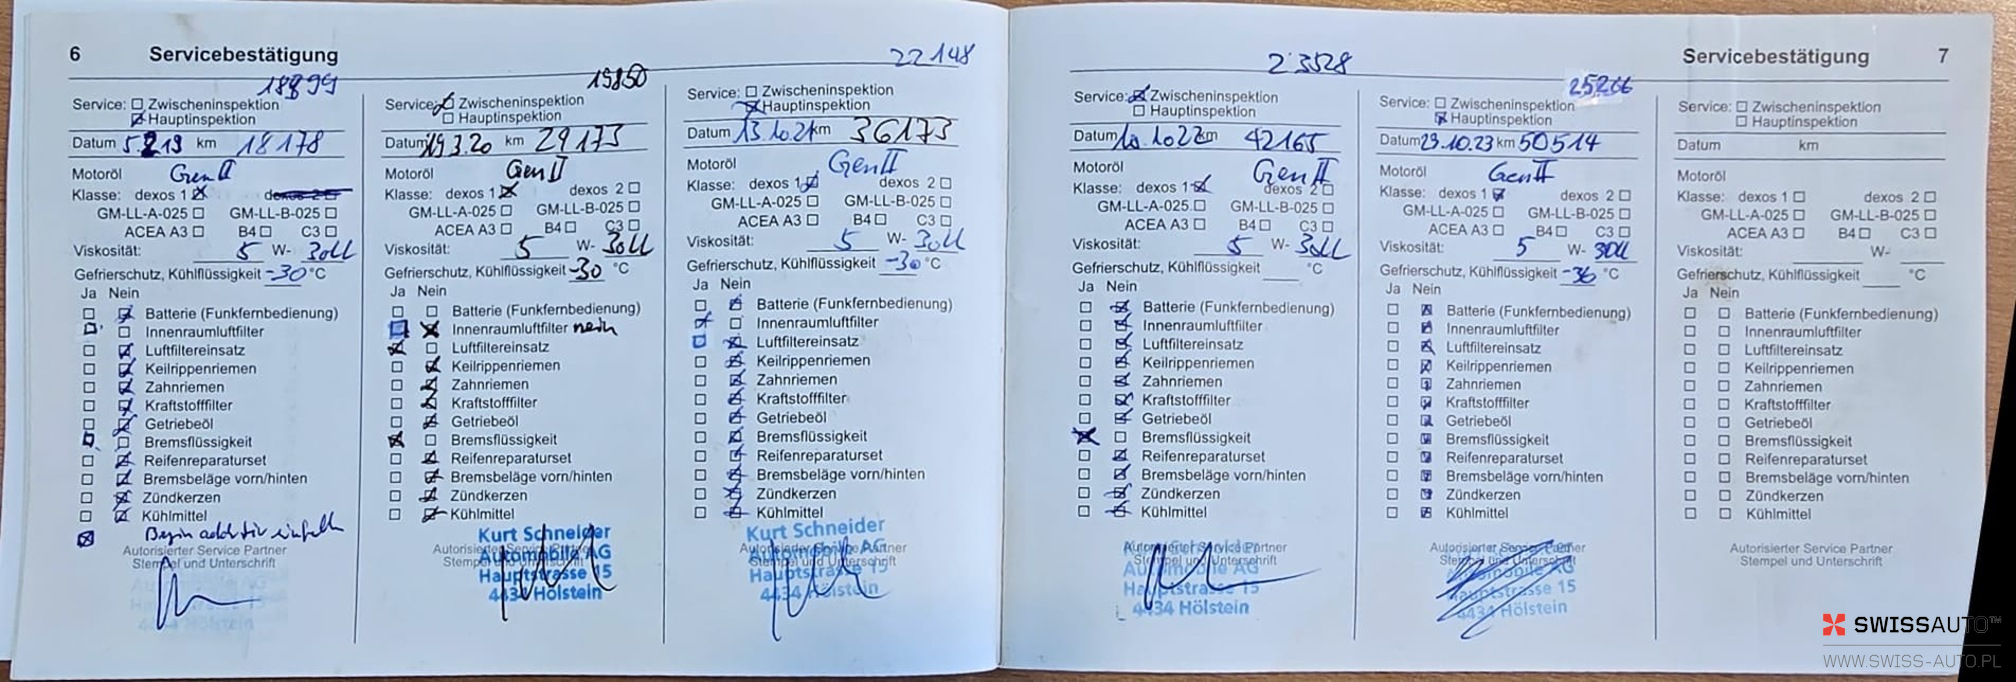 6 Servicebestätigung
18899
Service: Zwischeninspektion
Hauptinspektion
Datum 5.2.19 km 18178
Motoröl Gen II
Klasse: dexos 1 dexos 2
GM-LL-A-025 GM-LL-B-025
ACEA A3 B4 C3
Viskosität: 5 W- 30LL
Gefrierschutz, Kühlflüssigkeit -30 °C
Ja Nein
Batterie (Funkfernbedienung)
Innenraumluftfilter
Luftfiltereinsatz
Keilrippenriemen
Zahnriemen
Kraftstofffilter
Getriebeöl
Bremsflüssigkeit
Reifenreparaturset
Bremsbeläge vorn/hinten
Zündkerzen
Kühlmittel
Autorisierter Service Partner
Stempel und Unterschrift
19850
Service: Zwischeninspektion
Hauptinspektion
Datum 19.3.20 km 29173
Motoröl Gen II
Klasse: dexos 1 dexos 2
GM-LL-A-025 GM-LL-B-025
ACEA A3 B4 C3
Viskosität: 5 W- 30LL
Gefrierschutz, Kühlflüssigkeit -30 °C
Ja Nein
Batterie (Funkfernbedienung)
Innenraumluftfilter nein
Luftfiltereinsatz
Keilrippenriemen
Zahnriemen
Kraftstofffilter
Getriebeöl
Bremsflüssigkeit
Reifenreparaturset
Bremsbeläge vorn/hinten
Zündkerzen
Kühlmittel
Autorisierter Service Partner
Stempel und Unterschrift
Kurt Schneider
Automobile AG
Hauptstrasse 15
4434 Hölstein
22148
Service: Zwischeninspektion
Hauptinspektion
Datum 13.10.21 km 36173
Motoröl Gen II
Klasse: dexos 1 dexos 2
GM-LL-A-025 GM-LL-B-025
ACEA A3 B4 C3
Viskosität: 5 W- 30LL
Gefrierschutz, Kühlflüssigkeit -30 °C
Ja Nein
Batterie (Funkfernbedienung)
Innenraumluftfilter
Luftfiltereinsatz
Keilrippenriemen
Zahnriemen
Kraftstofffilter
Getriebeöl
Bremsflüssigkeit
Reifenreparaturset
Bremsbeläge vorn/hinten
Zündkerzen
Kühlmittel
Autorisierter Service Partner
Stempel und Unterschrift
Kurt Schneider
Automobile AG
Hauptstrasse 15
4434 Hölstein
Servicebestätigung 7
23528
Service: Zwischeninspektion
Hauptinspektion
Datum 10.10.22 km 42165
Motoröl Gen II
Klasse: dexos 1 dexos 2
GM-LL-A-025 GM-LL-B-025
ACEA A3 B4 C3
Viskosität: 5 W- 30LL
Gefrierschutz, Kühlflüssigkeit °C
Ja Nein
Batterie (Funkfernbedienung)
Innenraumluftfilter
Luftfiltereinsatz
Keilrippenriemen
Zahnriemen
Kraftstofffilter
Getriebeöl
Bremsflüssigkeit
Reifenreparaturset
Bremsbeläge vorn/hinten
Zündkerzen
Kühlmittel
Autorisierter Service Partner
Stempel und Unterschrift
Kurt Schneider
Automobile AG
Hauptstrasse 15
4434 Hölstein
25266
Service: Zwischeninspektion
Hauptinspektion
Datum 23.10.23 km 50514
Motoröl Gen II
Klasse: dexos 1 dexos 2
GM-LL-A-025 GM-LL-B-025
ACEA A3 B4 C3
Viskosität: 5 W- 30LL
Gefrierschutz, Kühlflüssigkeit -36 °C
Ja Nein
Batterie (Funkfernbedienung)
Innenraumluftfilter
Luftfiltereinsatz
Keilrippenriemen
Zahnriemen
Kraftstofffilter
Getriebeöl
Bremsflüssigkeit
Reifenreparaturset
Bremsbeläge vorn/hinten
Zündkerzen
Kühlmittel
Autorisierter Service Partner
Stempel und Unterschrift
Automobile AG
Hauptstrasse 15
4434 Hölstein
Service: Zwischeninspektion
Hauptinspektion
Datum km
Motoröl
Klasse: dexos 1 dexos 2
GM-LL-A-025 GM-LL-B-025
ACEA A3 B4 C3
Viskosität: W-
Gefrierschutz, Kühlflüssigkeit °C
Ja Nein
Batterie (Funkfernbedienung)
Innenraumluftfilter
Luftfiltereinsatz
Keilrippenriemen
Zahnriemen
Kraftstofffilter
Getriebeöl
Bremsflüssigkeit
Reifenreparaturset
Bremsbeläge vorn/hinten
Zündkerzen
Kühlmittel
Autorisierter Service Partner
Stempel und Unterschrift
SWISSAUTO™
WWW.SWISS-AUTO.PL